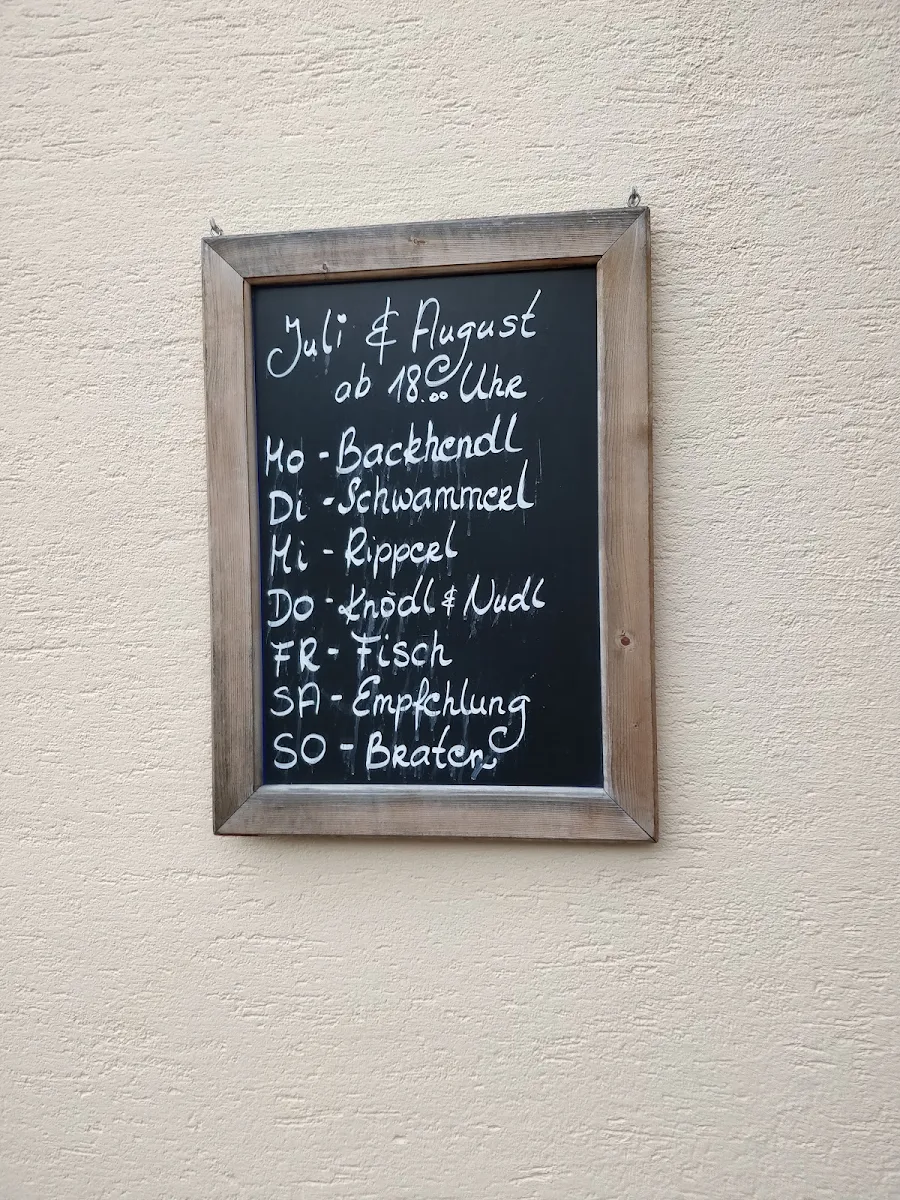 Juli & August
ab 18.00 Uhr
Mo - Backhendl
Di - Schwammerl
Mi - Ripperl
Do - Knödl & Nudl
FR - Fisch
SA - Empfehlung
SO - Braten